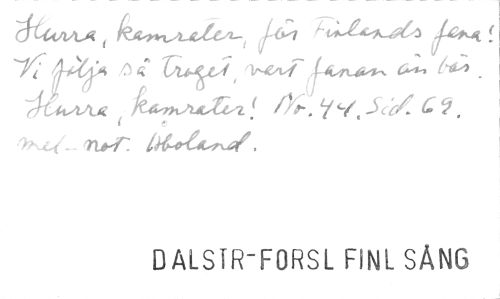 Hurra, kamrater, för Finlands fana!
Vi följa så troget, vart fanan än bär.
Hurra, kamrater! No. 44. Sid. 69.
mel. not. Åboland.
DALSTR-FORSL FINL SÅNG